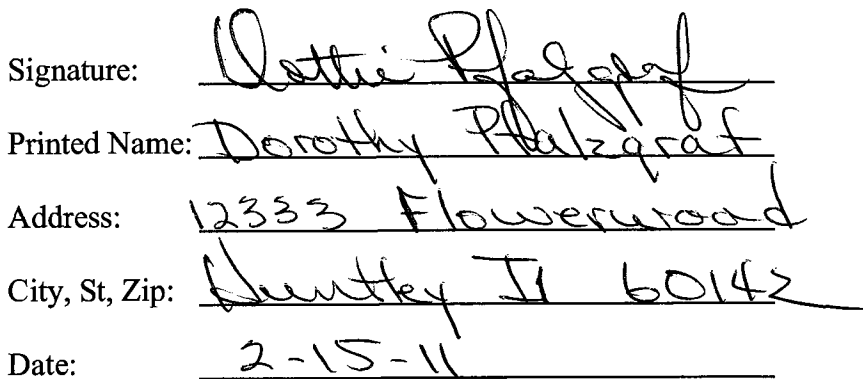 Signature: Dottie Pfalzgraf
Printed Name: Dorothy Pfalzgraf
Address: 12333 Flowerwood
City, St, Zip: Huntley Il 60142
Date: 2-15-11